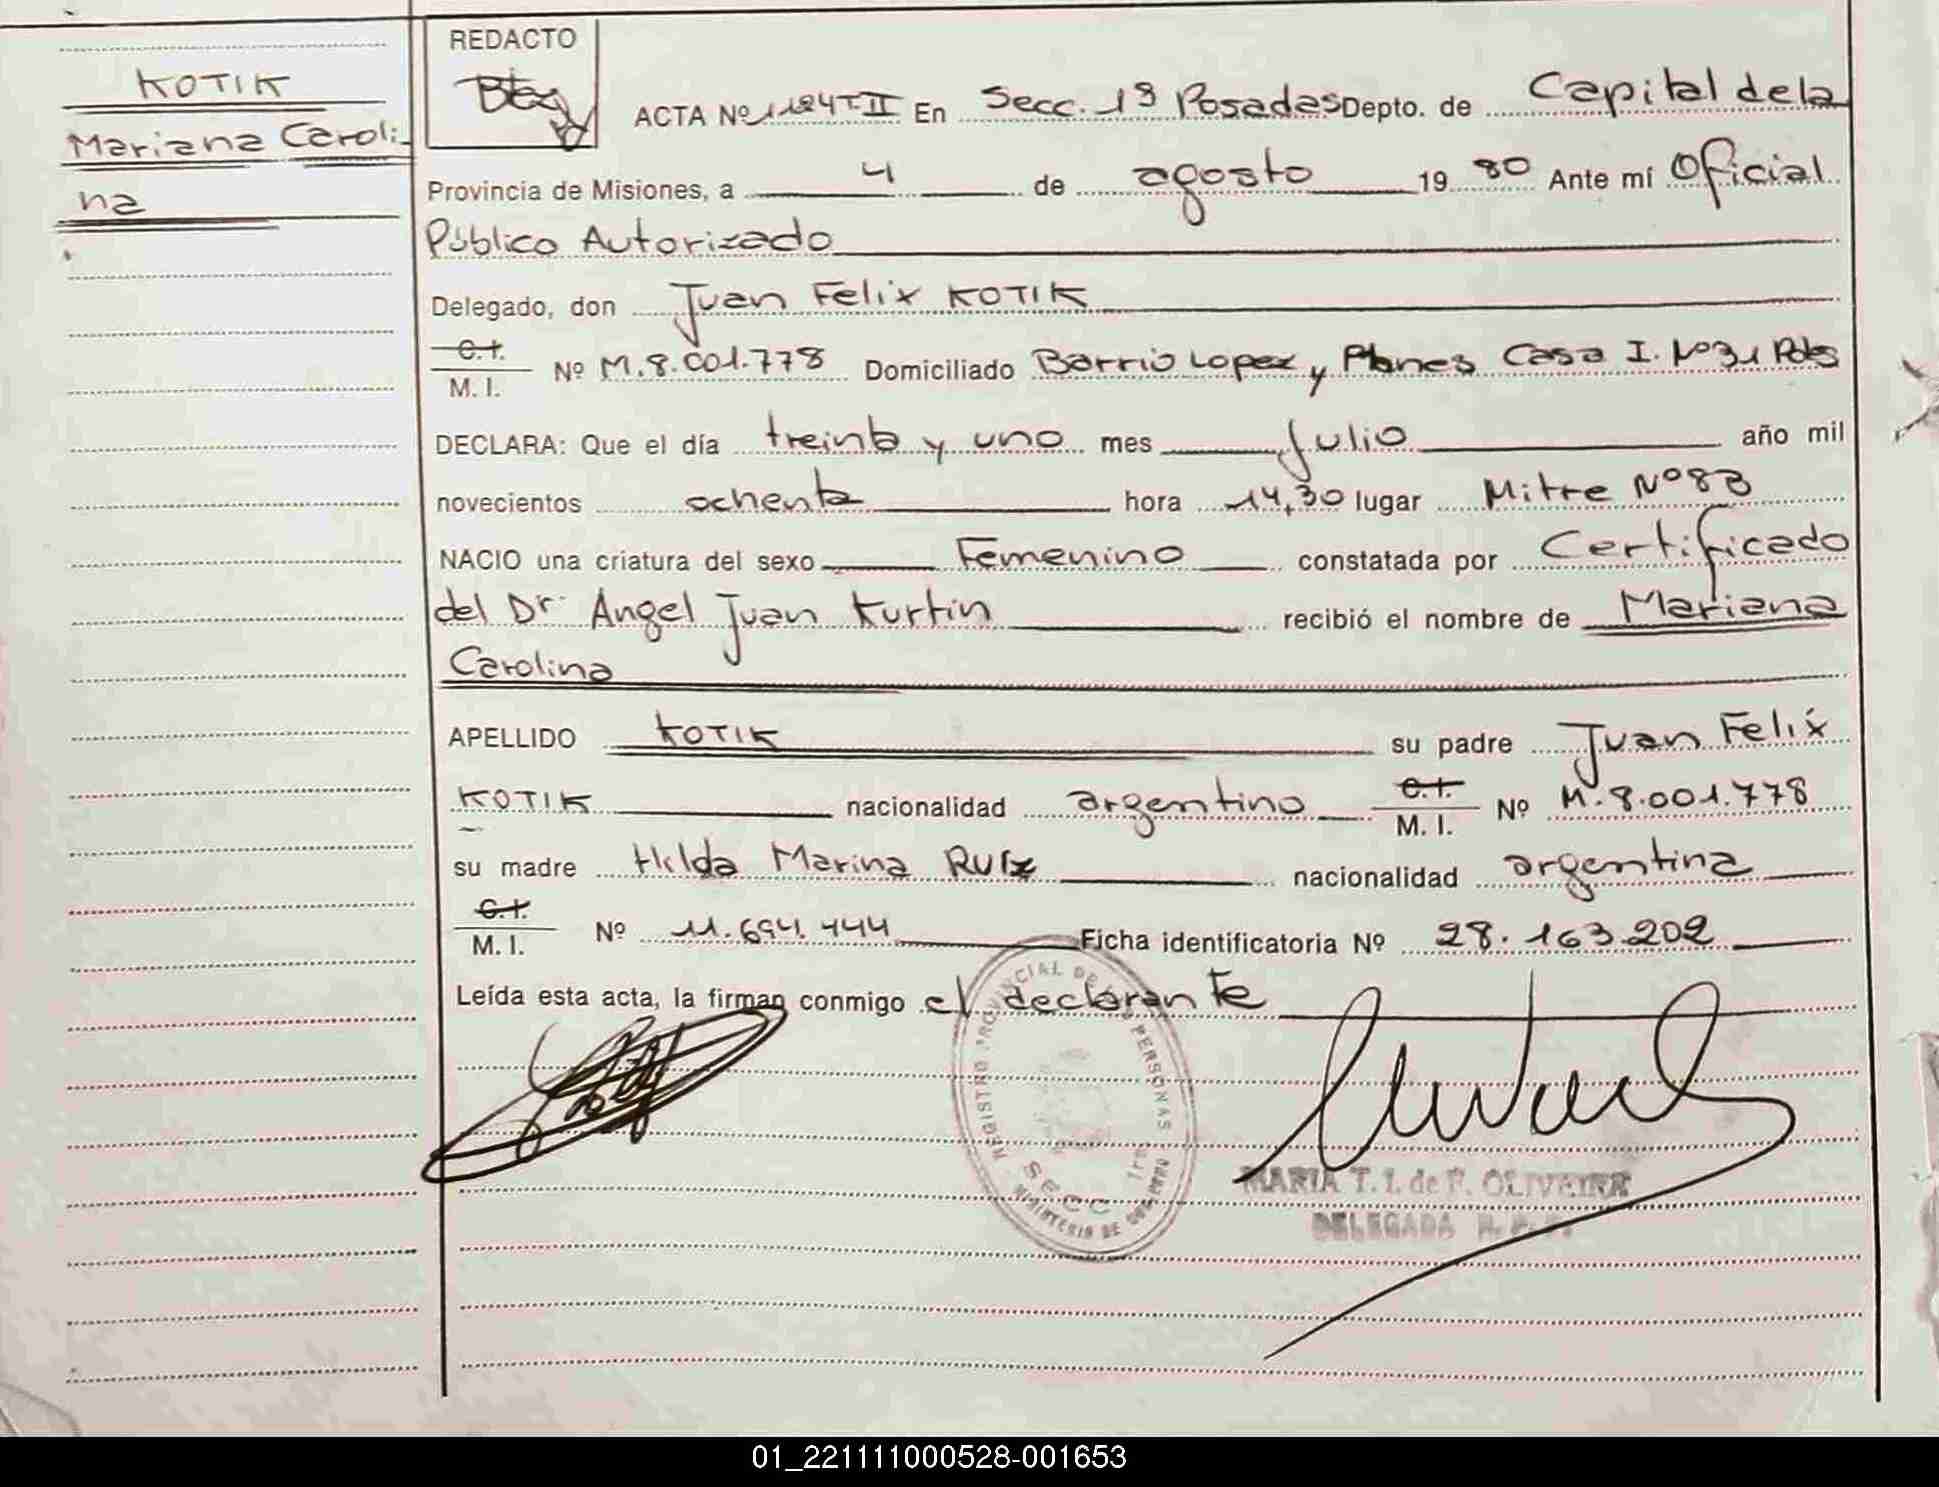 KOTIK
Mariana Caroli-
na
REDACTO
ACTA Nº 1184 T-II En Secc. 1ª Posadas Depto. de Capital de la
Provincia de Misiones, a 4 de agosto 19 80 Ante mí Oficial
Público Autorizado
Delegado, don Juan Felix KOTIK
C.I. M. I. Nº M.8.001.778 Domiciliado Barrio Lopez y Planes Casa I. Nº31 Pdas
DECLARA: Que el día treinta y uno mes Julio año mil
novecientos ochenta hora 14,30 lugar Mitre Nº 83
NACIO una criatura del sexo Femenino constatada por Certificado
del Dr. Angel Juan Kurtin recibió el nombre de Mariana
Carolina
APELLIDO KOTIK su padre Juan Felix
KOTIK nacionalidad argentino C.I. M. I. Nº M.8.001.778
su madre Hilda Marina RUIZ nacionalidad argentina
C.I. M. I. Nº 11.694.444 Ficha identificatoria Nº 28.163.202
Leída esta acta, la firman conmigo el declarante
REGISTRO PROVINCIAL DE LAS PERSONAS
SECC 1ra
MINISTERIO DE GOBIERNO
MARIA T. I. de F. OLIVEIRA
DELEGADA R. P. P.
01_221111000528-001653